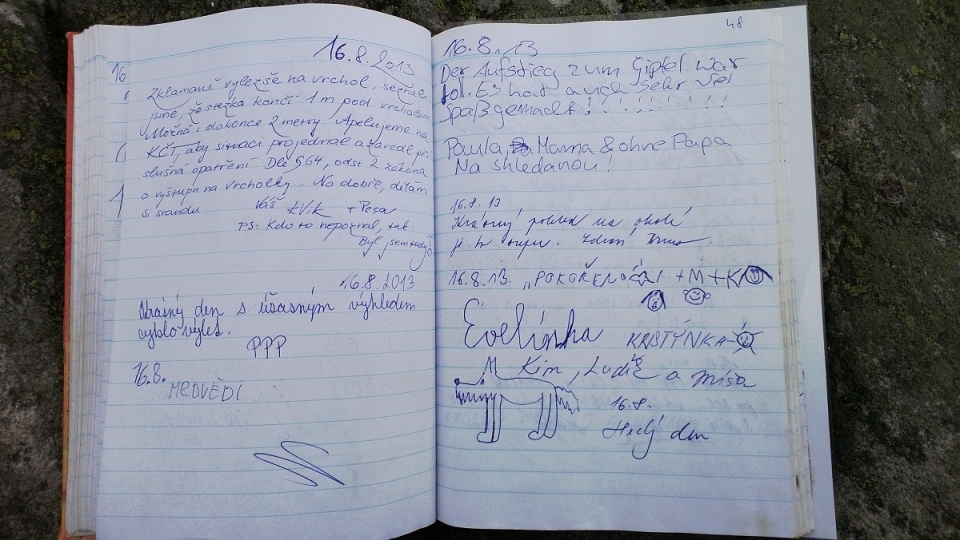 16.8.2013
Zklamaně vylezše na vrchol, seznali
jsme, že stezka končí 1m pod vrcholem
Možná i dokonce 2 metry! Apelujeme na
KČT, aby situaci projednal a zavedl pří-
slušná opatření. Dle §64, odst 2 zákona
o výstupu na vrcholky... No dobře, dělám
si srandu Váš + Pesa
PS: Kdo to nepoznal, tak
Byl jsem tady
16.8.2013
Krásný den s úžasným výhledem
cyklovýlet.
PPP
16.8.
MEDVĚDI
48
16.8.13
Der Aufstieg zum Gipfel war
tol. Es hat auch sehr viel
spaß gemacht!
Paula Mama & ohne Papa
Na shledanou!
16.8.13
Krásný pohled na okolí
je to super.
16.8.13 „POKOŘENO" ! + M + K
Evelínka KRISTÝNKA
Kim, Luděk a Míša
16.8.
Hezký den